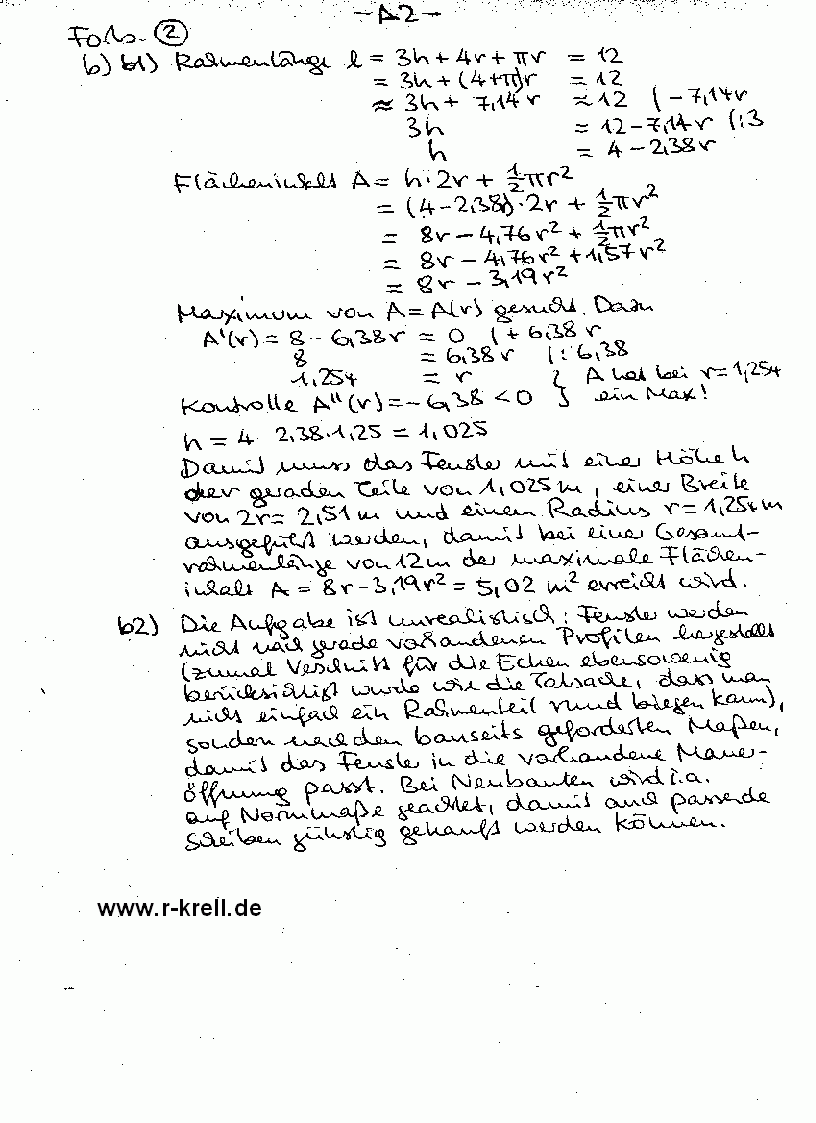 - A2 -
Forts. ②
b) b1) Rahmenlänge l = 3h + 4r + πr = 12
= 3h + (4+π)r = 12
≈ 3h + 7,14r ≈ 12 (-7,14r
3h = 12 - 7,14r (:3
h = 4 - 2,38r
Flächeninhalt A = h·2r + ½πr²
= (4-2,38r)·2r + ½πr²
= 8r - 4,76r² + ½πr²
= 8r - 4,76r² + 1,57r²
= 8r - 3,19r²
Maximum von A = A(r) gesucht. Dazu
A'(r) = 8 - 6,38r = 0 (+ 6,38r
8 = 6,38r (: 6,38
1,254 = r } A hat bei r=1,254
Kontrolle A''(r) = -6,38 < 0 } ein Max!
h = 4 2,38·1,25 = 1,025
Damit muss das Fenster mit einer Höhe h
der geraden Teile von 1,025 m, einer Breite
von 2r = 2,51 m und einen Radius r = 1,254 m
ausgeführt werden, damit bei einer Gesamt-
rahmenlänge von 12m der maximale Flächen-
inhalt A = 8r - 3,19r² = 5,02 m² erreicht wird.
b2) Die Aufgabe ist unrealistisch: Fenster werden
nicht nach gerade vorhandenen Profilen hergestellt
(zumal Verschnitt für die Ecken ebensowenig
berücksichtigt wurde wie die Tatsache, dass man
nicht einfach ein Rahmenteil rund biegen kann),
sondern nach den bauseits geforderten Maßen,
damit das Fenster in die vorhandene Mauer-
öffnung passt. Bei Neubauten wird i.a.
auf Normmaße geachtet, damit auch passende
Scheiben günstig gekauft werden können.
www.r-krell.de